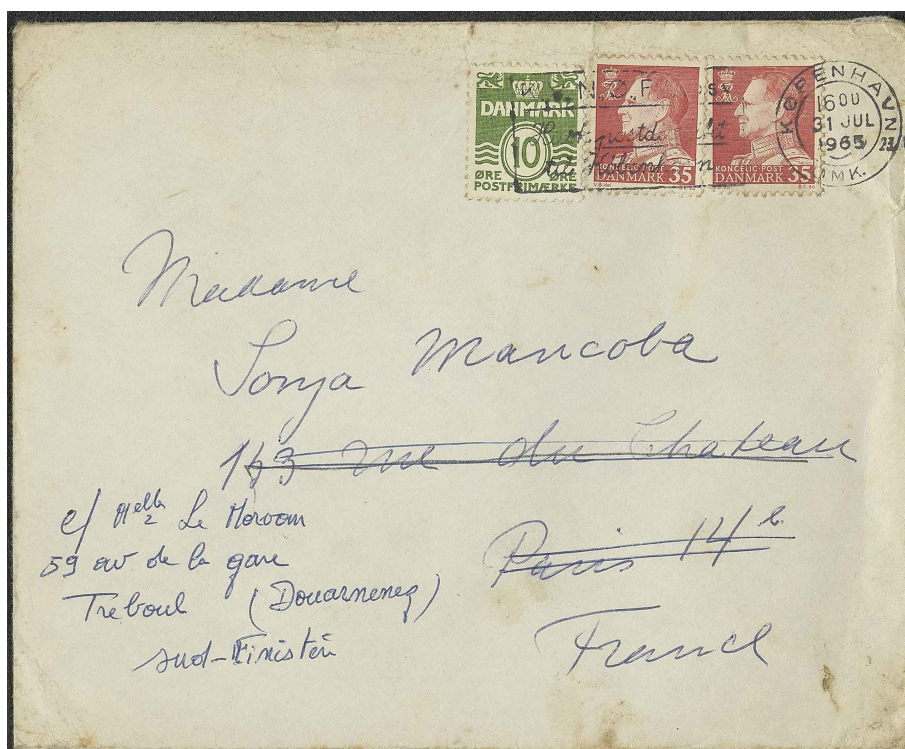 DANMARK
10
ØRE ØRE
POSTFRIMÆRKE
KONGELIG·POST
DANMARK 35
KONGELIG·POST
DANMARK 35
KØBENHAVN
1600
31 JUL
1965
OMK.
Madame
Sonja Mancoba
163 rue du Chateau
Paris 14e
France
c/ Melle Le Morvan
59 av de la gare
Treboul (Douarnenez)
sud-Finistèr